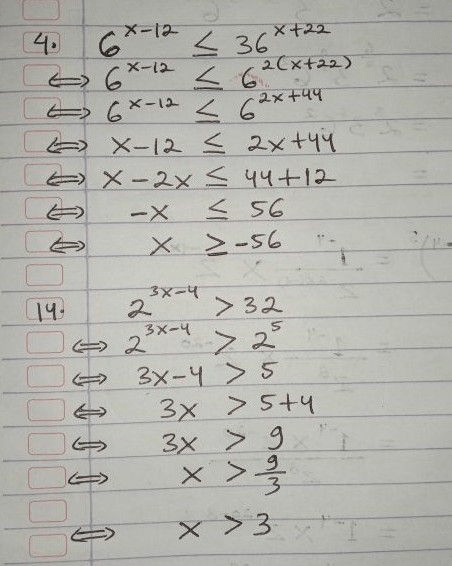 4. 6^{x-12} ≤ 36^{x+22}
⇔ 6^{x-12} ≤ 6^{2(x+22)}
⇔ 6^{x-12} ≤ 6^{2x+44}
⇔ x-12 ≤ 2x+44
⇔ x-2x ≤ 44+12
⇔ -x ≤ 56
⇔ x ≥ -56
14. 2^{3x-4} > 32
⇔ 2^{3x-4} > 2^5
⇔ 3x-4 > 5
⇔ 3x > 5+4
⇔ 3x > 9
⇔ x > 9/3
⇔ x > 3